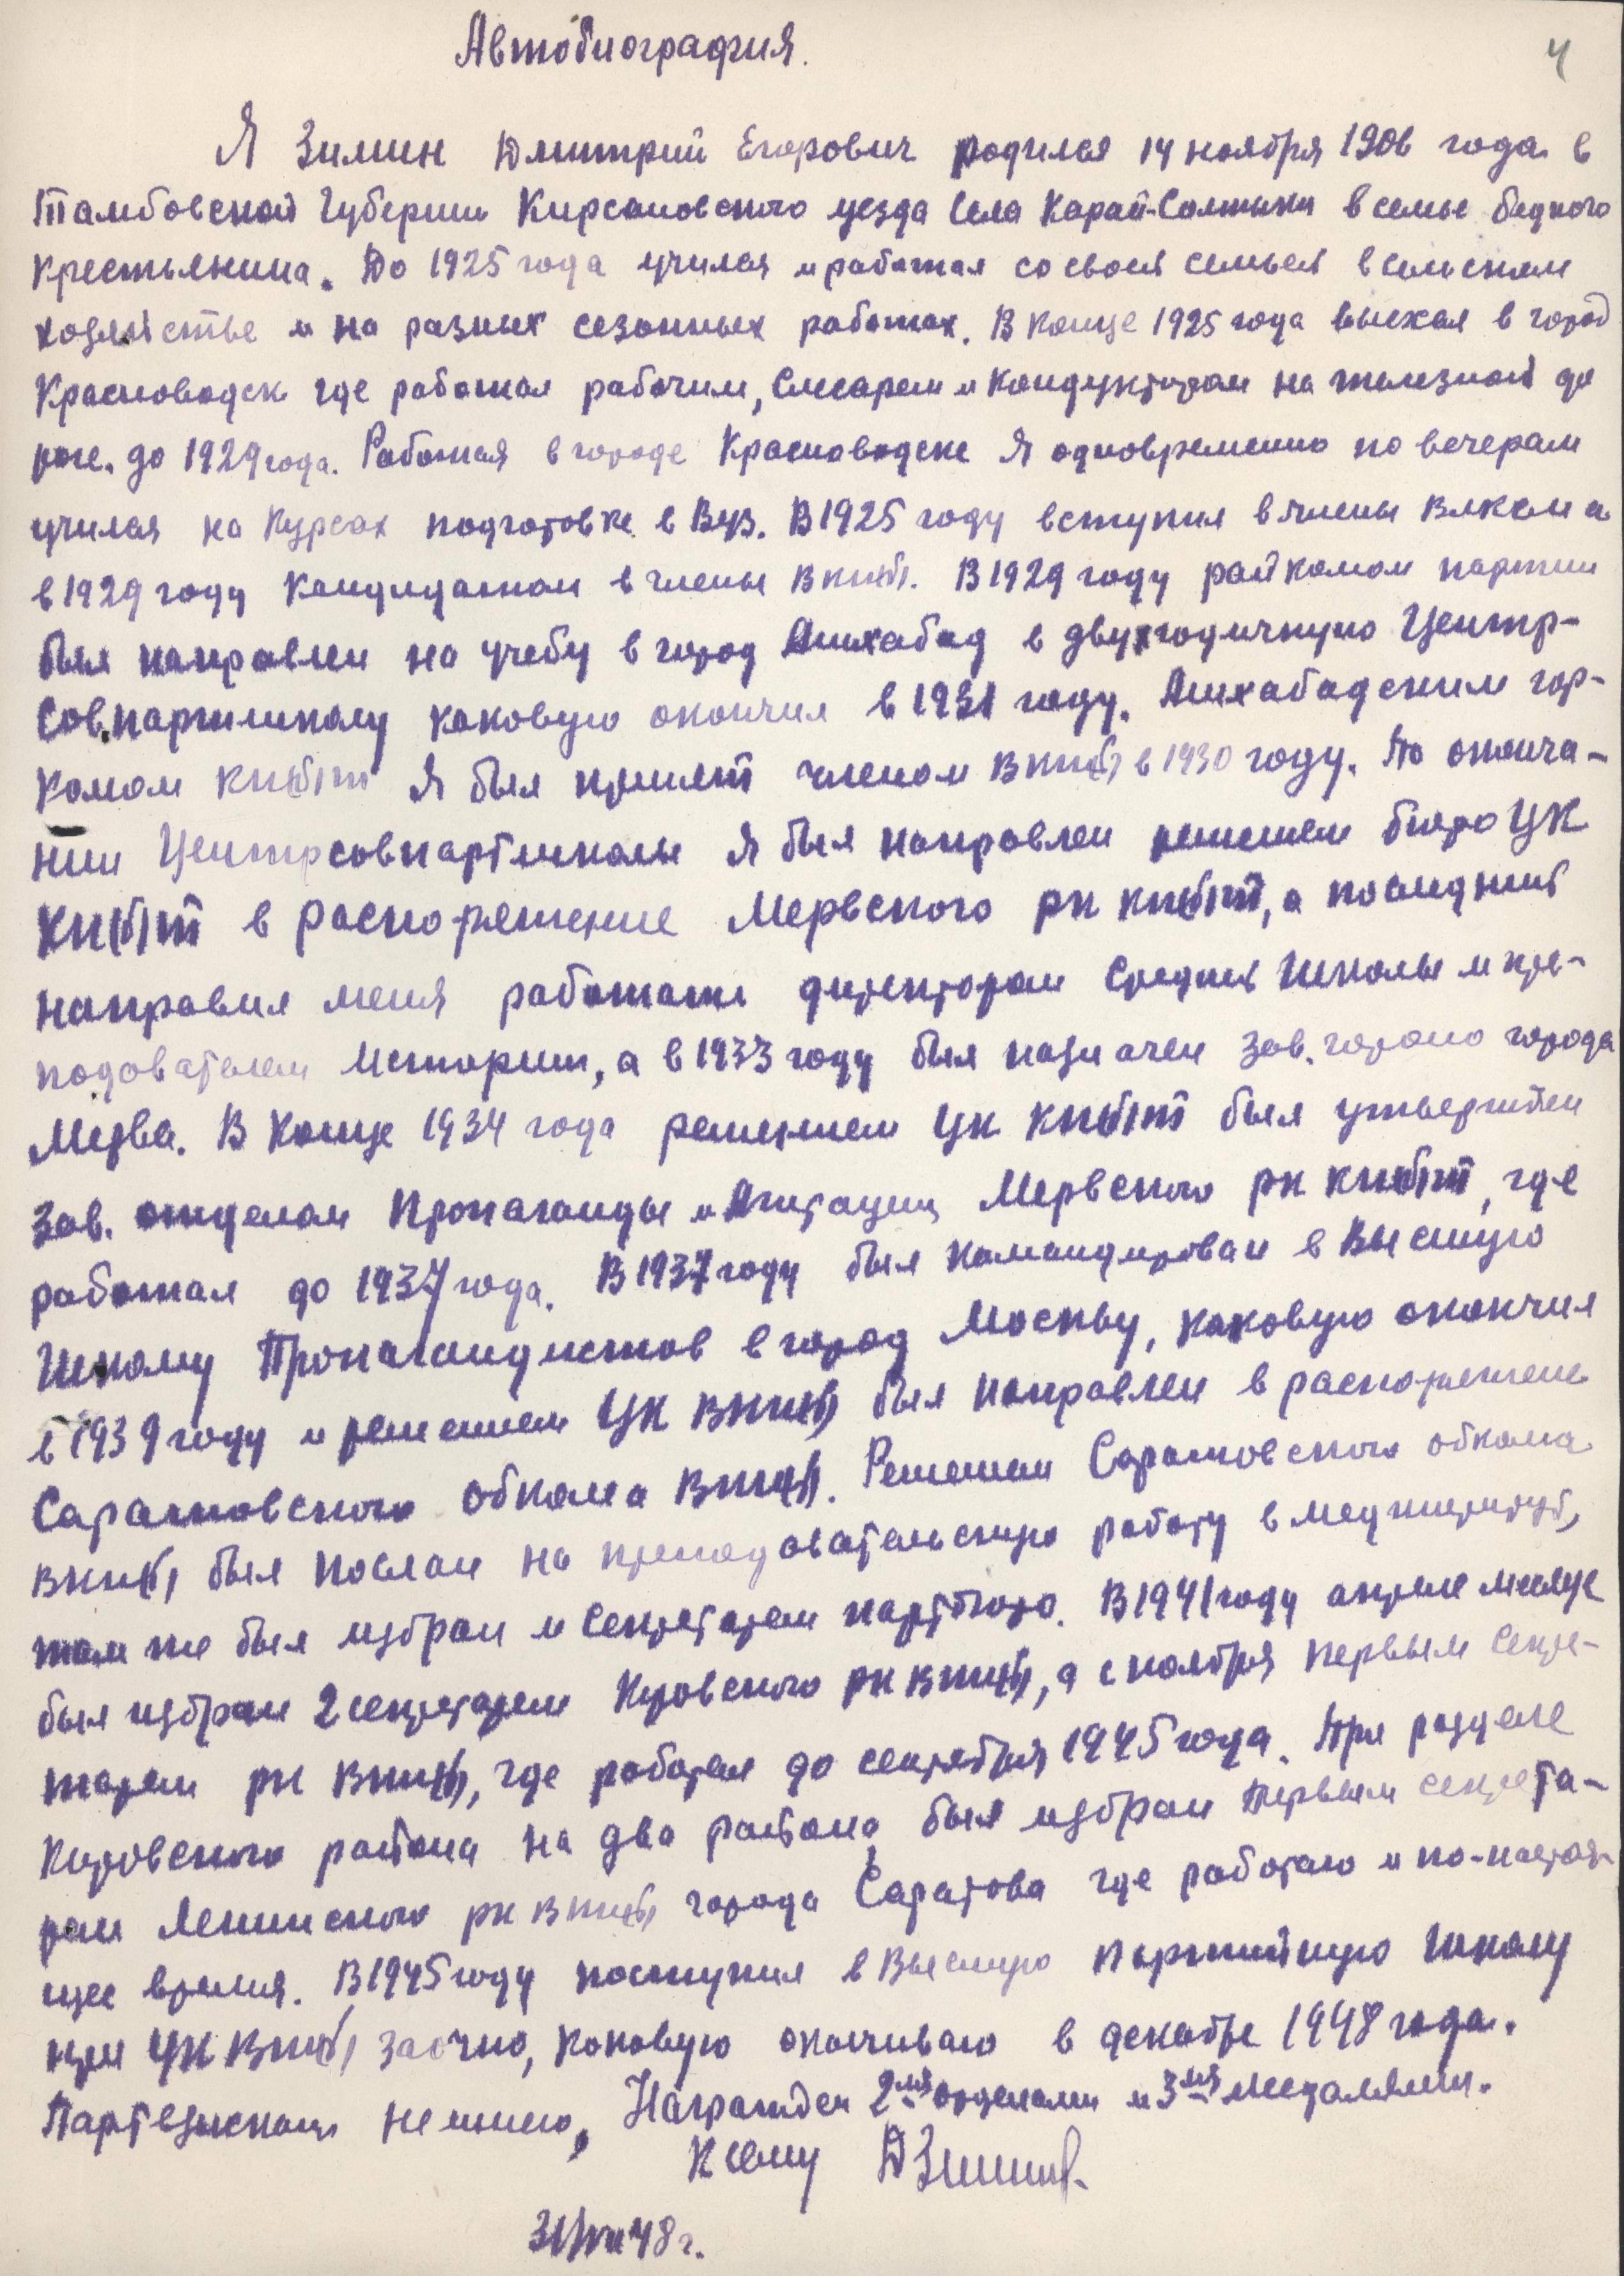 Автобиография.
4
Я Зимин Дмитрий Егорович родился 14 ноября 1906 года в
Тамбовской Губернии Кирсановского уезда Села Карай-Салтыки в семье бедного
крестьянина. До 1925 года учился и работал со своей семьей в сельском
хозяйстве и на разных сезонных работах. В конце 1925 года выехал в город
Красноводск где работал рабочим, Слесарем и Кондуктором на железной до
роге. до 1929 года. Работая в городе Красноводске Я одновременно по вечерам
учился на Курсах подготовке в Вуз. В 1925 году вступил в члены Влксм а
в 1929 году Кандидатом в члены ВКП(б). В 1929 году райкомом партии
был направлен на учебу в город Ашхабад в двухгодичную Центр-
Совпартшколу каковую окончил в 1931 году. Ашхабадским гор-
комом КП(б)Т Я был принят членом ВКП(б) в 1930 году. По оконча-
нии Центрсовпартшколы Я был направлен решением бюро ЦК
КП(б)Т в распоряжение Мервского РК КП(б)Т, а последний
направил меня работать директором Средней Школы и пре-
подователем Истории, а в 1933 году был назначен Зав. гороно города
Мерва. В Конце 1934 года решением ЦК КП(б)Т был утвержден
Зав. отделом Пропаганды и Агитации Мервского РК КП(б)Т, где
работал до 1937 года. В 1937 году был командирован в Высшую
Школу Пропагандистов в город Москву, каковую окончил
в 1939 году и решением ЦК ВКП(б) был направлен в распоряжение
Саратовского обкома ВКП(б). Решением Саратовского обкома
ВКП(б) был послан на преподовательскую работу в мединститут,
там же был избран и Секретарем партбюро. В 1941 году апреле месяце
был избран 2 секретарем Кировского РК ВКП(б), а с ноября первым Секре-
тарем РК ВКП(б), где работал до сентября 1945 года. При разделе
Кировского района на два района был избран Первым секрета-
рем Ленинского РК ВКП(б) города Саратова где работаю и по-настоя-
щее время. В 1945 году поступил в Высшую Партийную Школу
при ЦК ВКП(б) заочно, каковую оканчиваю в декабре 1948 года.
Партвзысканий не имею, Награжден 2мя орденами и 3мя медалями.
К сему ДЗимин
48 г.